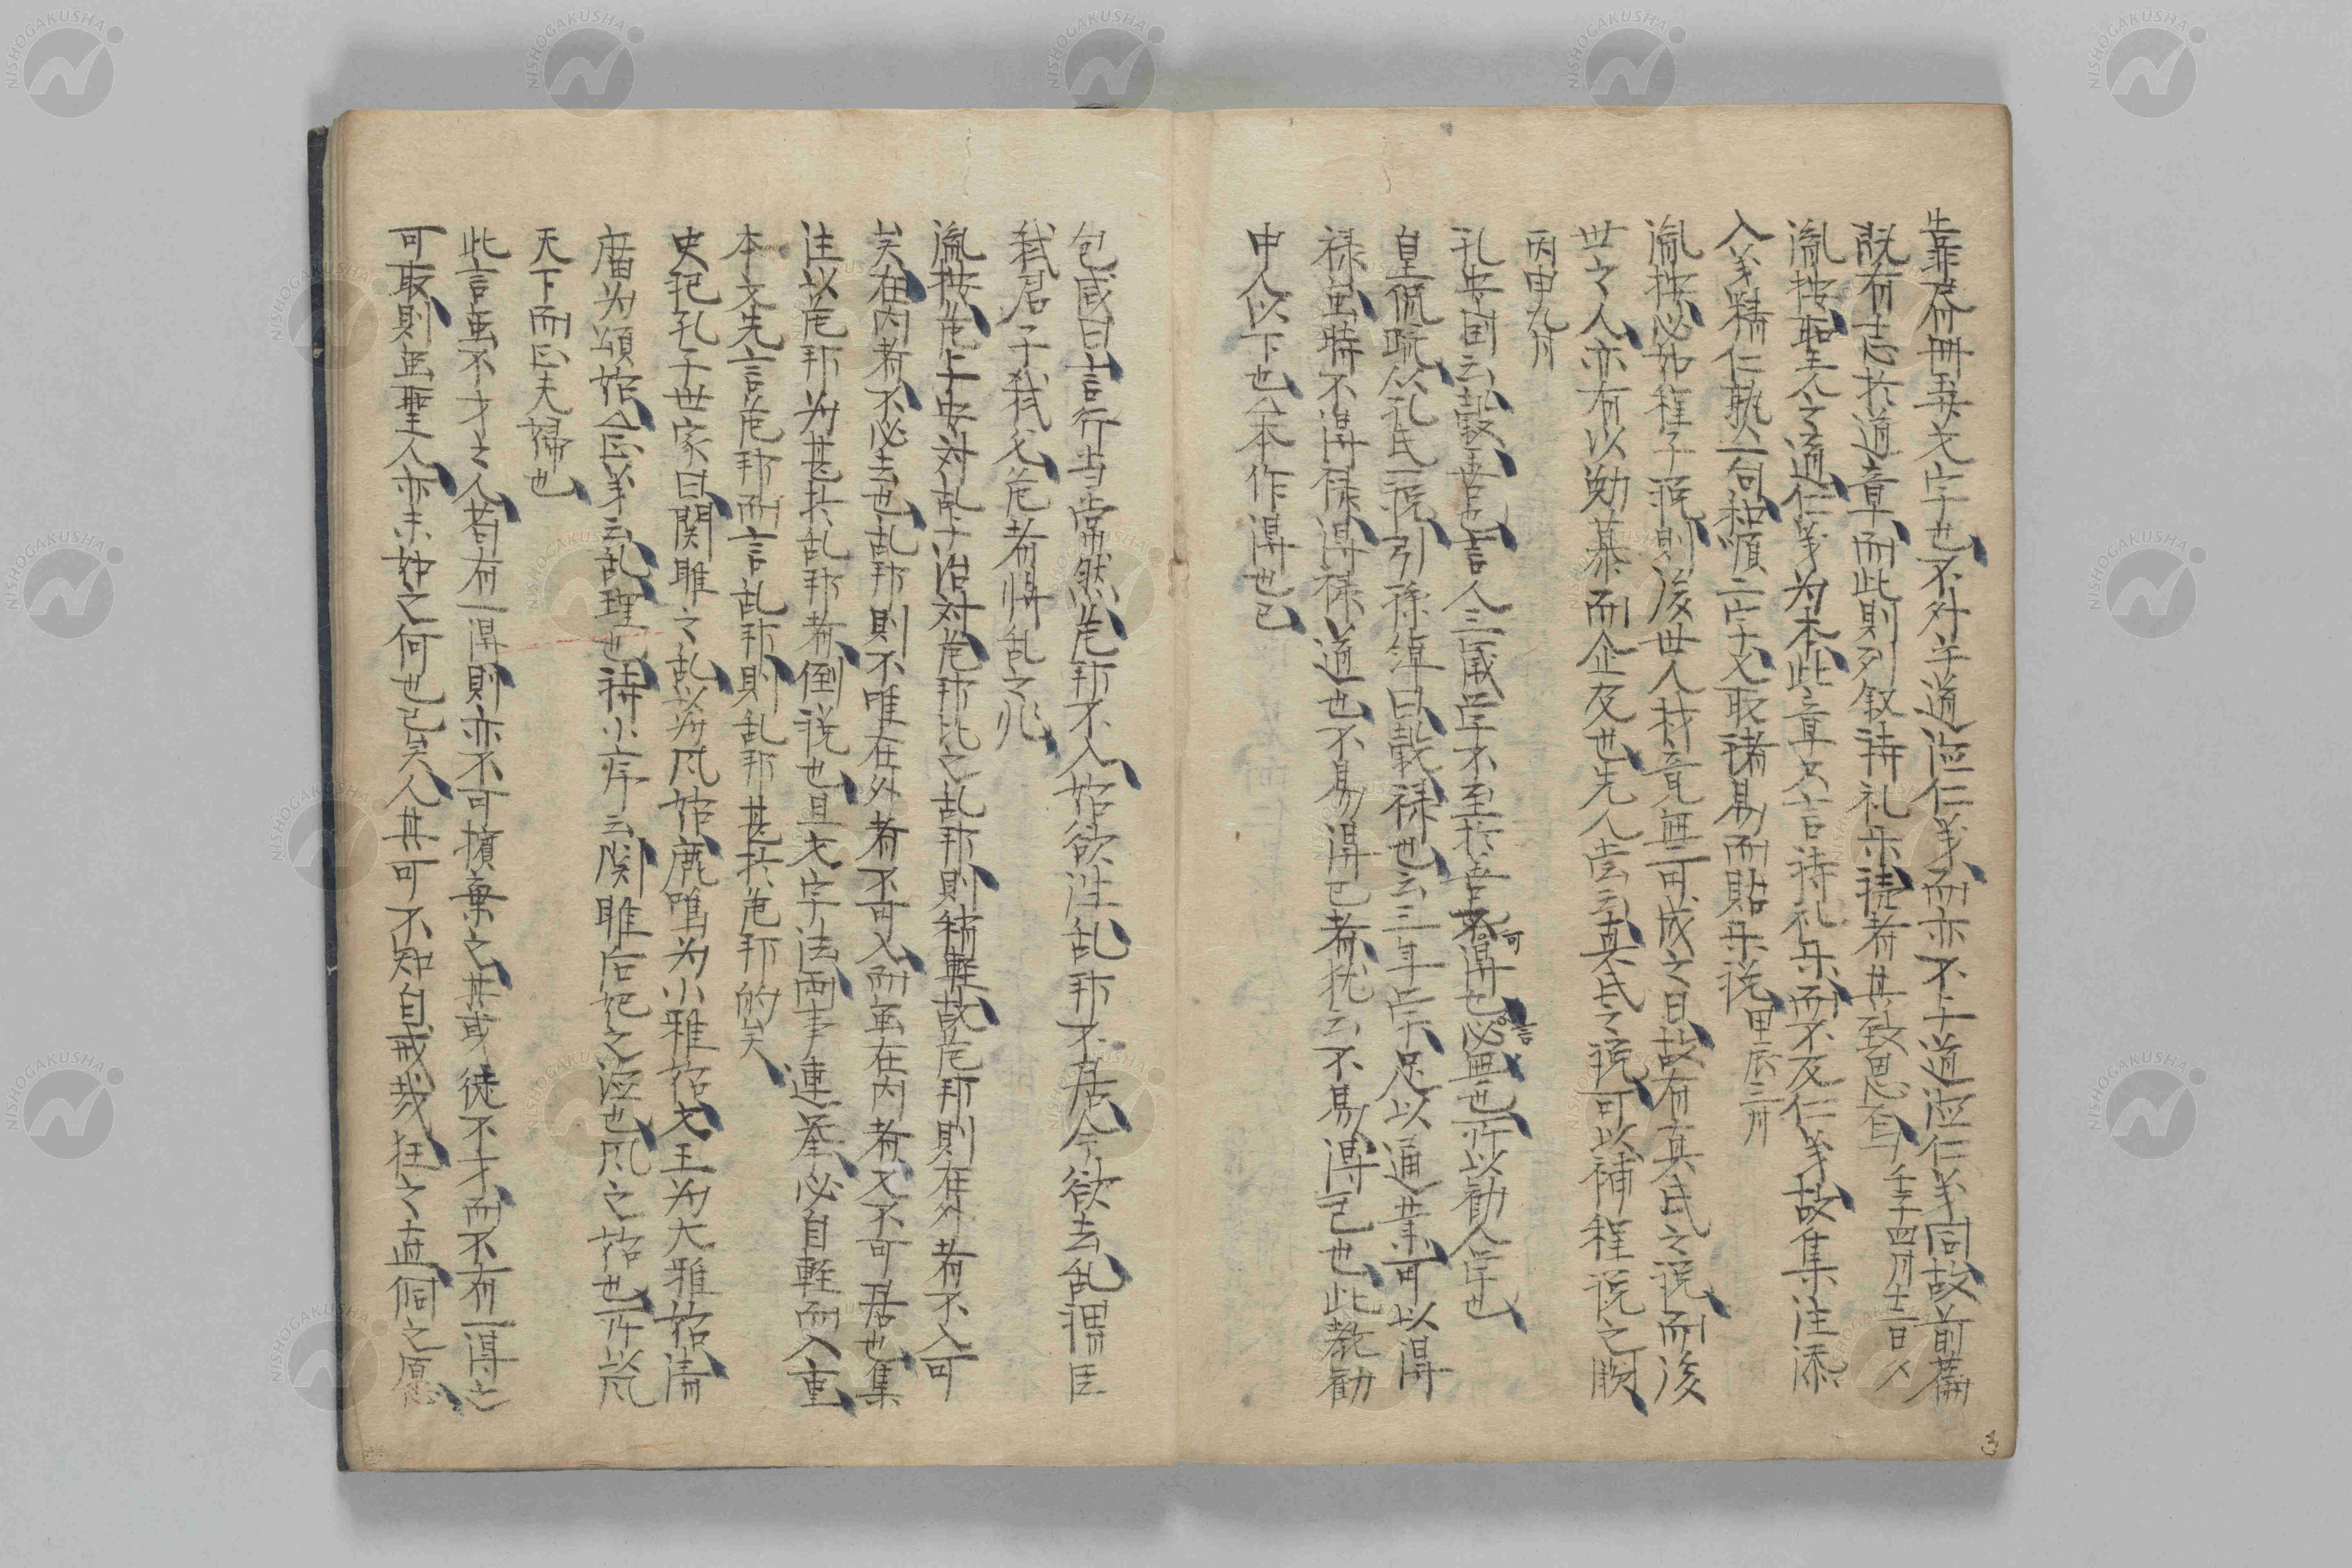 生罪有冊五六字也不外乎道德仁義而亦不与道德仁義同故前篇
既有志於道章而此則列叙詩礼楽読者其致思焉 壬子四月十三日入
胤按聖人之道仁義为本此章只言詩礼楽而不及仁義故集注添
入義精仁熟一句和順二字又取諸易而貼楽説 甲辰三月
胤按必如程子説則後世人材竟無可成之日故有真氏之説而後
世之人亦有以勉慕而企及也先人嘗云真氏之説可以補程説之闕
丙申九月
孔安国云穀善也言人三歳学不至於善不可得也言必無也所以勧人学也
皇侃疏从孔氏一説引孫綽曰穀禄也云三年学足以通業可以得
禄虽時不得禄得禄道也不易得已者猶云不易得已也此教勧
中人以下也本作得也已
包咸曰言行当常然危邦不入始欲往乱邦不居今欲去乱謂臣
弑君子弑父危者将乱之兆
胤按危与安対乱与治対危邦比之乱邦則稍軽故危邦則在外者不入可
矣在内者不必去也乱邦則不唯在外者不可入而虽在内者又不可居也集
注以危邦为甚於乱邦者倒説也且文字法両事連挙必自軽而入重
本文先言危邦而言乱邦則乱邦甚於危邦的矣
史記孔子世家曰関雎之乱以为风始鹿鳴为小雅始文王为大雅始清
廟为頌始正義云乱理也詩小序云関雎后妃之德也风之始也所以风
天下而正夫婦也
此言虽不才之人若有一得則亦不可擯棄之其或徒不才而不有一得之
可取則虽聖人亦末如之何也已矣人其可不知自戒哉狂之直侗之愿
NISHOGAKUSHA